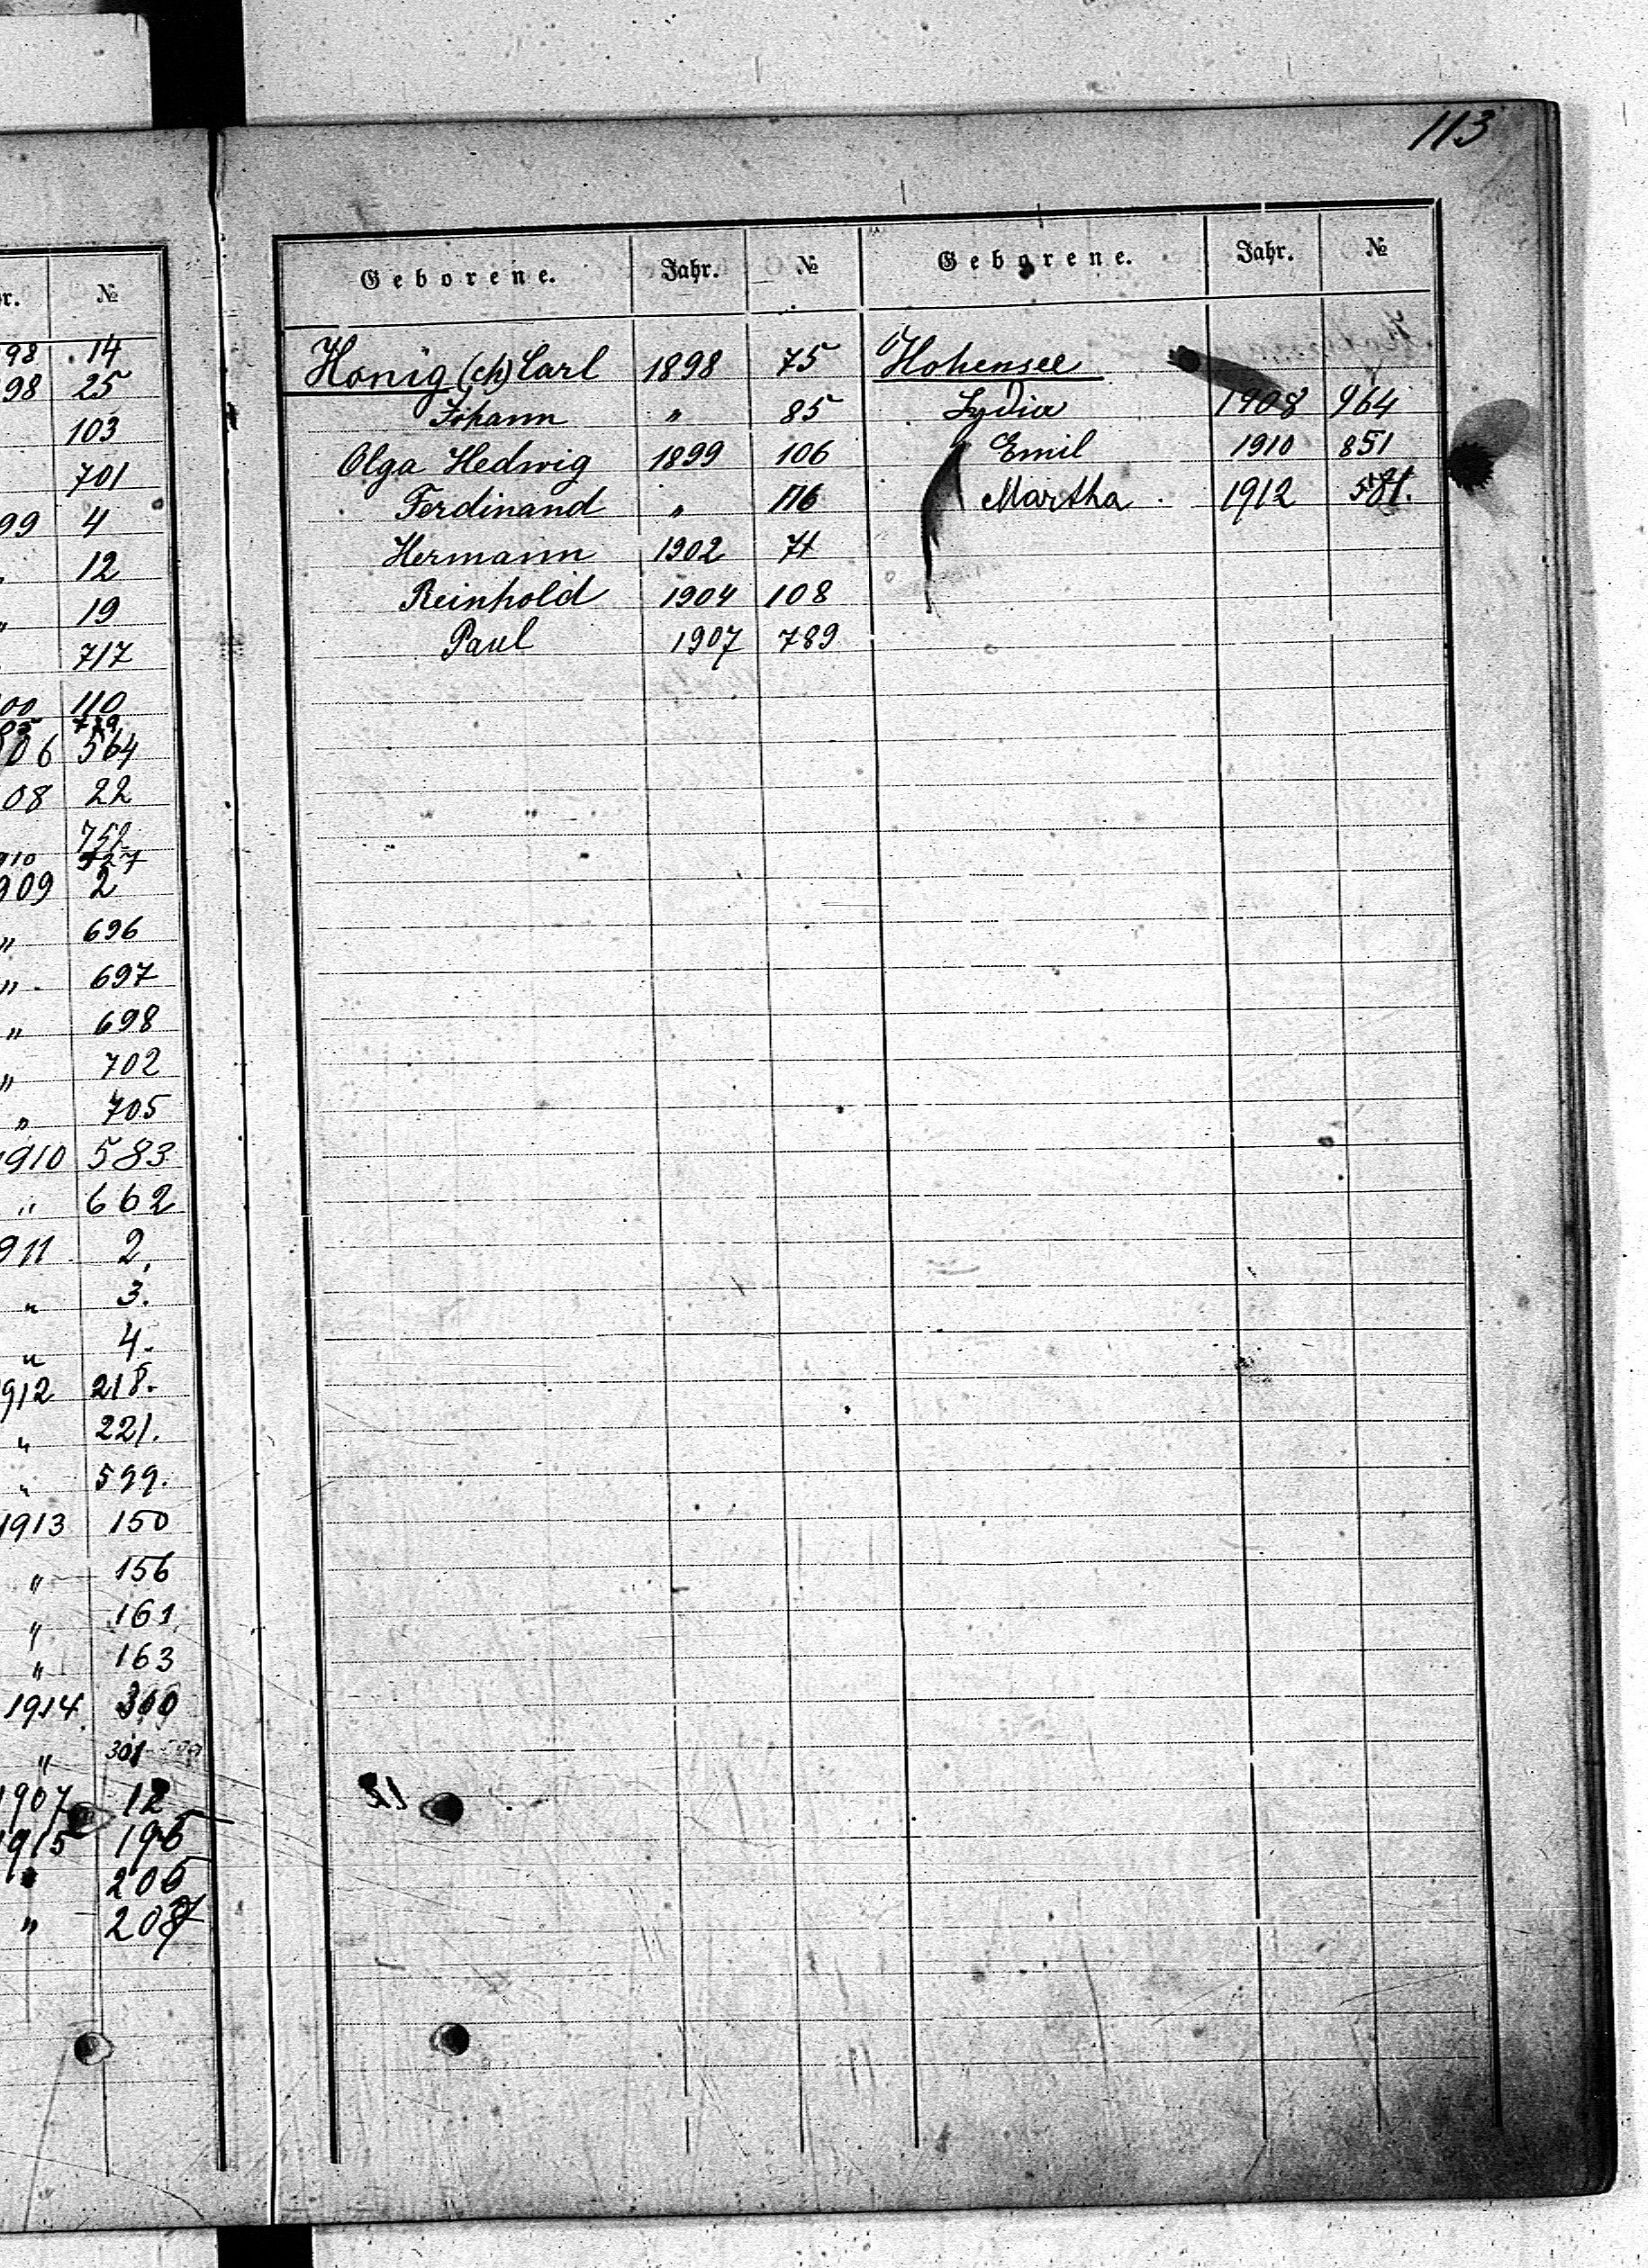 113
r. №
98 14
98 25
103
701
99 4
12
" 19
717
00 110
05 719
06 564
08 22
752
910 527
909 2
" 696
" 697
" 698
" 702
" 705
1910 583
" 662
911 2.
" 3.
" 4.
912 218.
" 221.
" 599.
1913 150
" 156
" 161
" 163
1914 300
" 301
1907 12
1915 196
" 206
" 207
Geborene. Jahr. № Geborene. Jahr. №
Honig (ch) Carl 1898 75 Hohensee
Johann " 85 Lydia 1908 964
Olga Hedwig 1899 106 Emil 1910 851
Ferdinand " 116 Martha 1912 581.
Hermann 1902 71
Reinhold 1904 108
Paul 1907 789